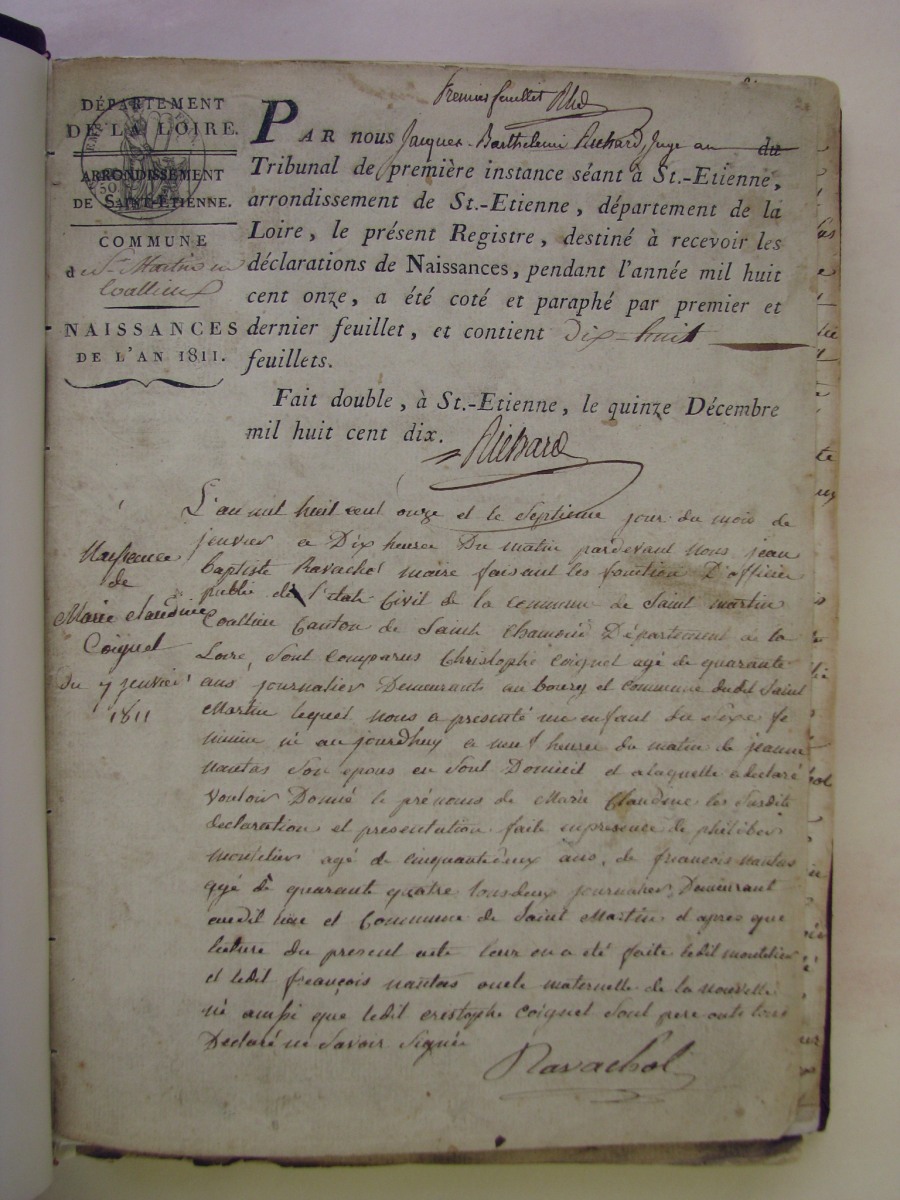 Premier feuillet
DÉPARTEMENT
DE LA LOIRE.
ARRONDISSEMENT
DE SAINT-ETIENNE.
COMMUNE
de St. Martin en
Coallieux
NAISSANCES
DE L'AN 1811.
PAR nous Jacques-Barthelemi Richard, Juge au du
Tribunal de première instance séant à St.-Etienne,
arrondissement de St.-Etienne, département de la
Loire, le présent Registre, destiné à recevoir les
déclarations de Naissances, pendant l'année mil huit
cent onze, a été coté et paraphé par premier et
dernier feuillet, et contient dix-huit
feuillets.
Fait double, à St.-Etienne, le quinze Décembre
mil huit cent dix.
Richard
Naissance
de
Marie Claudine
Coignet
Du 7 jenvier
1811
L'an mil huit cent onze et le Septieme jour du mois de
jenvier a Dix heures Du matin pardevant nous jean
Baptiste Ravachol maire faisant les fonction D'officier
public de l'état Civil de la commune de Saint martin
Coallieu Canton de Saint Chamond Département de la
Loire, sont comparus Christophe Coignet agé de quarante
ans journalier Demeurants au bourg et commune dudit Saint
Martin lequel nous a presenté un enfant du Sexe fe
minin né aujourdhuy a neuf heures du matin de jeanne
nantas son epous en Sont Domicil et a laquelle a declaré
vouloir Donné le prénoms de Marie Claudine les Susdite
declaration et presentation faite enpresence de philiber
montelier agé de cinquantedeux ans, de françois nantas
agé de quarante quatre tousdeux journalier Demeurant
audit lieu et Commune de Saint Martin et apres que
lecture du present acte leur on a été faite ledit montelier
et ledit françois nantas oncle maternelle de la nouvelle
né ainsi que ledit cristophe coignet Sont pere onte tous
Declaré ne Savoir Signée
Ravachol